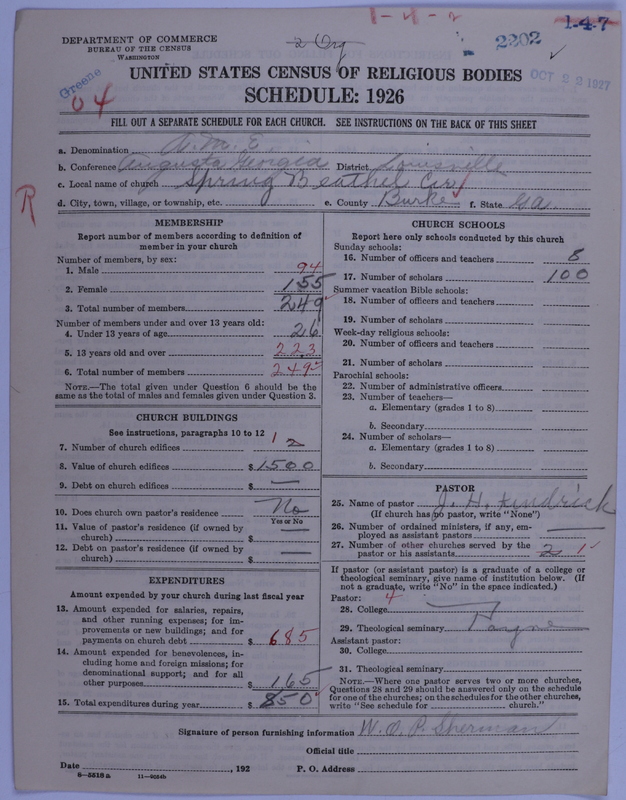 1-4-2
1-4-7
DEPARTMENT OF COMMERCE
BUREAU OF THE CENSUS
WASHINGTON
2 Org
2202
OCT 22 1927
Greene
04
UNITED STATES CENSUS OF RELIGIOUS BODIES
SCHEDULE: 1926
FILL OUT A SEPARATE SCHEDULE FOR EACH CHURCH. SEE INSTRUCTIONS ON THE BACK OF THIS SHEET
a. Denomination A. M. E.
b. Conference Augusta Georgia District Louisville
c. Local name of church Spring Beathel Cir
d. City, town, village, or township, etc. e. County Burke f. State Ga.
R
MEMBERSHIP
Report number of members according to definition of
member in your church
Number of members, by sex:
1. Male 94
2. Female 155
3. Total number of members 249
Number of members under and over 13 years old:
4. Under 13 years of age 26
5. 13 years old and over 223
6. Total number of members 249
NOTE.—The total given under Question 6 should be the
same as the total of males and females given under Question 3.
CHURCH BUILDINGS
See instructions, paragraphs 10 to 12
7. Number of church edifices 1 2
8. Value of church edifices $1500
9. Debt on church edifices $ —
10. Does church own pastor's residence No
Yes or No
11. Value of pastor's residence (if owned by
church) $ —
12. Debt on pastor's residence (if owned by
church) $ —
EXPENDITURES
Amount expended by your church during last fiscal year
13. Amount expended for salaries, repairs,
and other running expenses; for im-
provements or new buildings; and for
payments on church debt $ 685
14. Amount expended for benevolences, in-
cluding home and foreign missions; for
denominational support; and for all
other purposes $ 165
15. Total expenditures during year $ 850
CHURCH SCHOOLS
Report here only schools conducted by this church
Sunday schools:
16. Number of officers and teachers 8
17. Number of scholars 100
Summer vacation Bible schools:
18. Number of officers and teachers
19. Number of scholars
Week-day religious schools:
20. Number of officers and teachers
21. Number of scholars
Parochial schools:
22. Number of administrative officers
23. Number of teachers—
a. Elementary (grades 1 to 8)
b. Secondary
24. Number of scholars—
a. Elementary (grades 1 to 8)
b. Secondary
PASTOR
25. Name of pastor J. H. Kendrick
(If church has no pastor, write "None")
26. Number of ordained ministers, if any, em-
ployed as assistant pastors —
27. Number of other churches served by the
pastor or his assistants 2 1
If pastor (or assistant pastor) is a graduate of a college or
theological seminary, give name of institution below. (If
not a graduate, write "No" in the space indicated.)
Pastor: 4
28. College —
29. Theological seminary Payne
Assistant pastor:
30. College
31. Theological seminary
NOTE.—Where one pastor serves two or more churches,
Questions 28 and 29 should be answered only on the schedule
for one of the churches; on the schedules for the other churches,
write "See schedule for church."
Signature of person furnishing information W. O. P. Sherman
Official title
Date , 192 P. O. Address
6—5518a 11—9254b